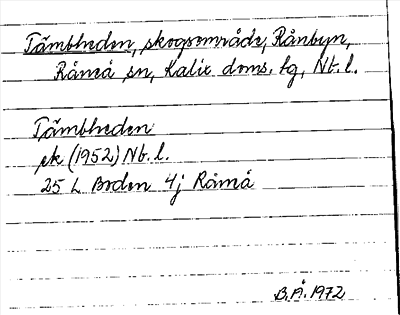 Tåmbheden, skogsområde, Rånbyn,
Råneå sn, Kalix doms. tg, Nb. l.
Tåmbheden
ek (1952) Nb. l.
25 L Boden 4j Råmå
B.Å. 1972